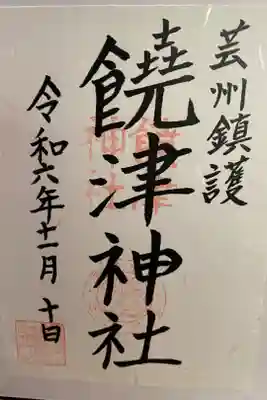 芸州鎮護
饒津神社
令和六年十一月十日